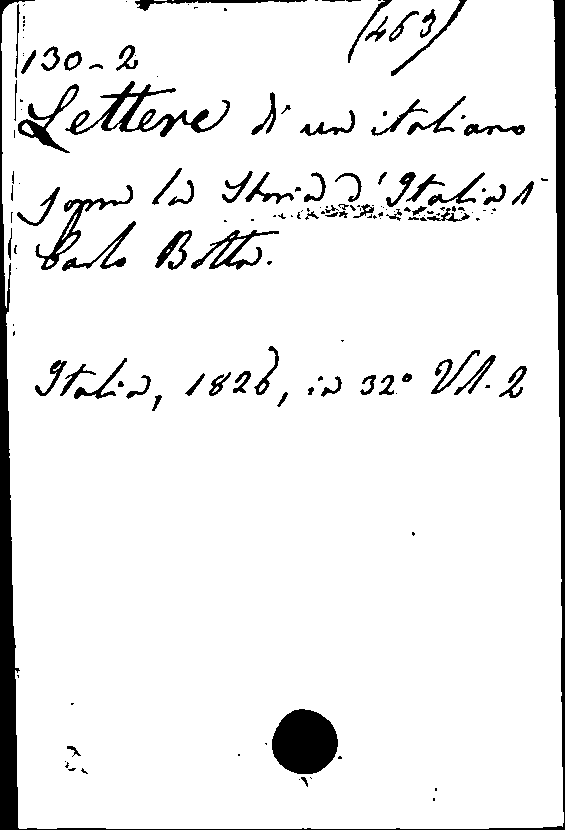 (463)
130-2
Lettere di un italiano
sopra la Storia d'Italia di
Carlo Botta.
Italia, 1826, in 32° Vol. 2